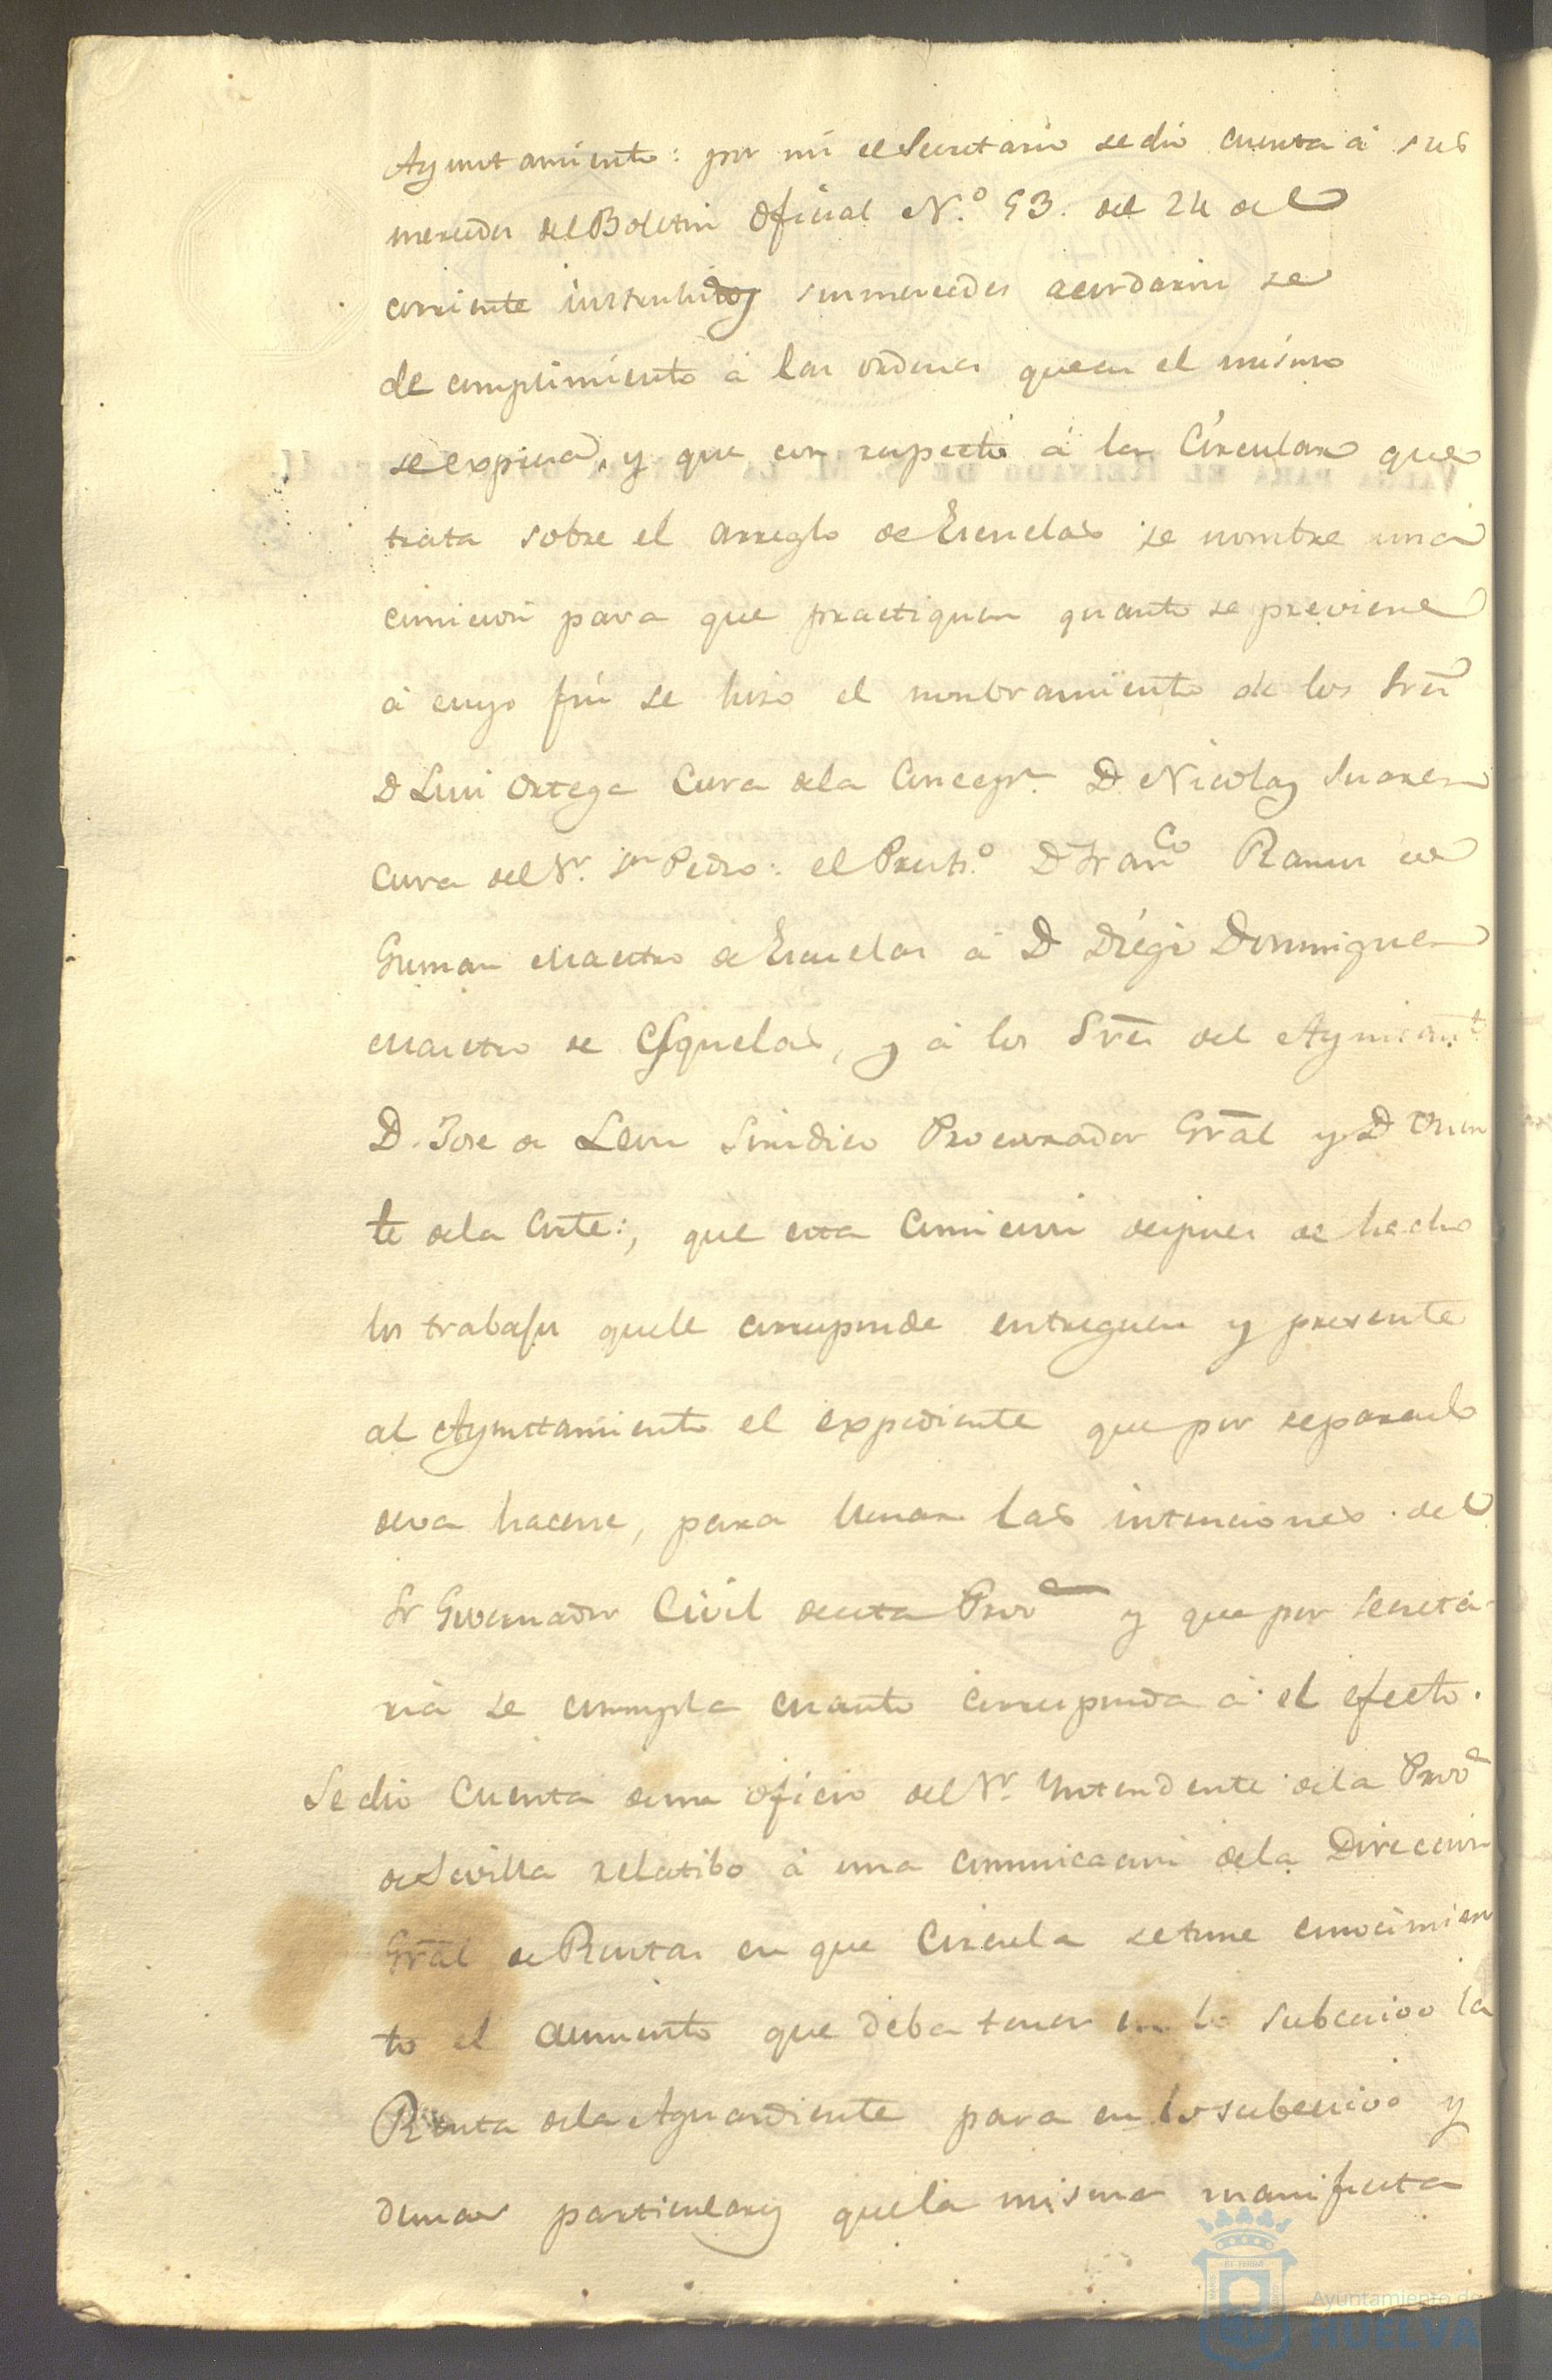 Ayuntamiento: por mi el Secretario se dio cuenta á sus
mercedes del Boletin Oficial N.º 93. del 24 del
corriente instruhidos sus mercedes acordaron se
de cumplimiento á las ordenes que en el mismo
se expresa, y que con respecto á la Circular que
trata sobre el arreglo de Escuelas se nombre una
comicion para que practiquen quanto se previene
á cuyo fin se hizo el nombramiento de los Sres
D Luis Ortega Cura de la Concepn. D. Nicolas Suarez
Cura del Sr. Sn Pedro: el Presb.º D Franco Ramos de
Gusman Maestro de Escuelas á D Diego Dominguez
Maestro de Esquelas, y á los Sres del Ayuntamt.
D. Jose de Leon Sindico Procurador Gral y D Vicen
te de la Corte:, que esta Comicion despues de hecho
los trabajos que le corresponde entreguen y presente
al Ayuntamiento el expediente que por separado
deva hacerse, para llenar las intenciones del
Sr Governador Civil de esta Prova y que por secreta-
ria se cumpla cuanto corresponda á el efecto.
Se dio Cuenta de un oficio del Sr. Yntendente de la Prova
de Sevilla relatibo á una comunicacion de la Direccion
Gral de Rentas en que Circula se tome conocimien
to el aumento que deba tener en lo subcecivo la
Renta de la Aguardiente para en lo subcecivo y
demas particulares que la misma manifiesta
Ayuntamiento de
HUELVA